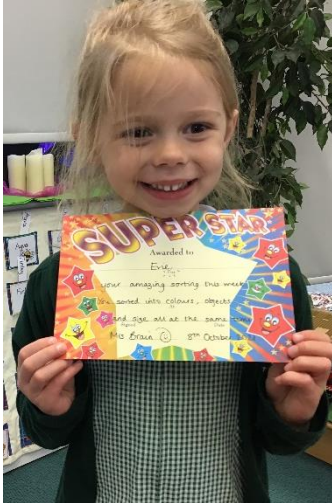 SUPER STAR
Awarded to
Evie
your amazing sorting this week
She sorted into colours, objects
and size all at the same time
Signed Date
Mrs Brain 8th October